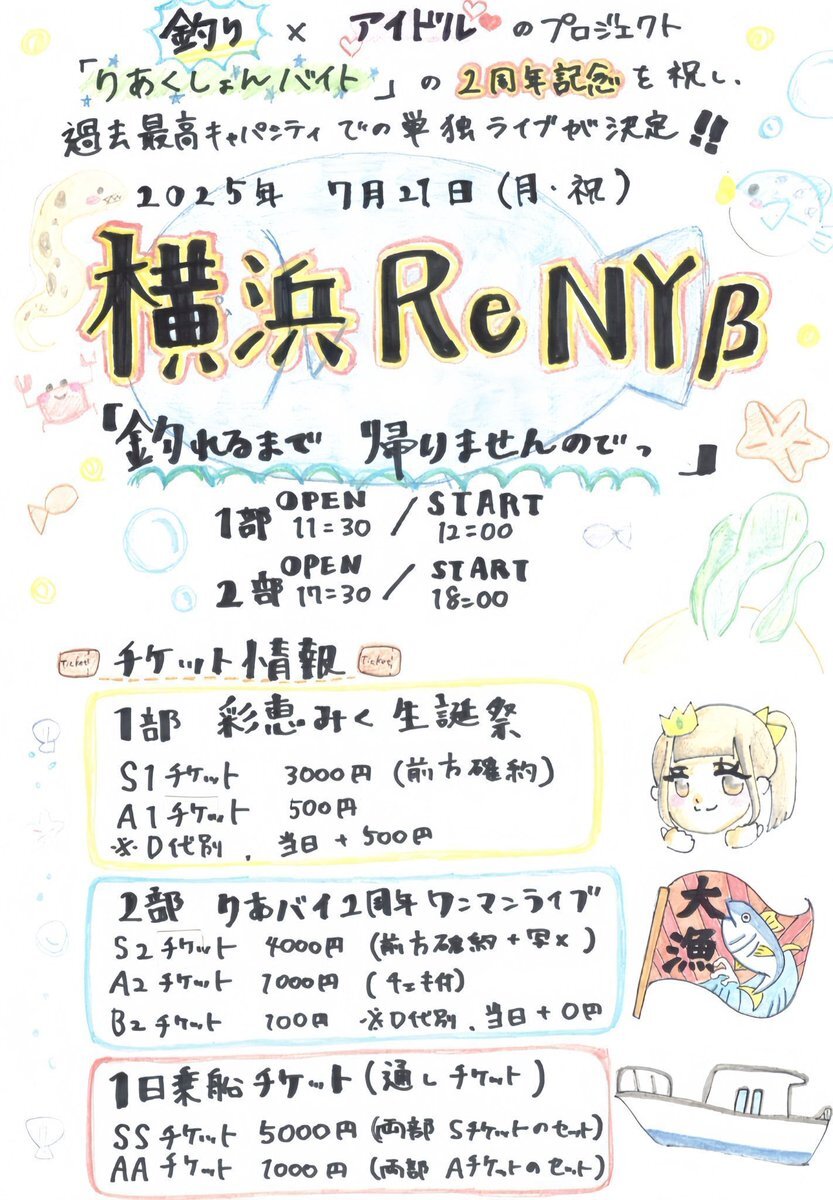 釣り × アイドル のプロジェクト
「りあくしょんバイト」の 2周年記念を祝し、
過去最高キャパシティでの単独ライブが決定!!
2025年 7月21日(月・祝)
横浜ReNYβ
「釣れるまで 帰りませんのでっ」
1部 OPEN 11:30 / START 12:00
2部 OPEN 17:30 / START 18:00
Ticket チケット情報 Ticket
1部 彩恵みく生誕祭
S1チケット 3000円 (前方確約)
A1チケット 500円
※D代別、当日+500円
2部 りあバイ2周年ワンマンライブ
S2チケット 4000円 (前方確約+写メ)
A2チケット 1000円 (チェキ付)
B2チケット 100円 ※D代別、当日+0円
大漁
1日乗船チケット(通しチケット)
SSチケット 5000円 (両部Sチケットのセット)
AAチケット 1000円 (両部Aチケットのセット)